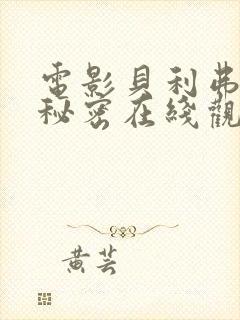 電影貝利弗
秘密在綫觀
黃芸